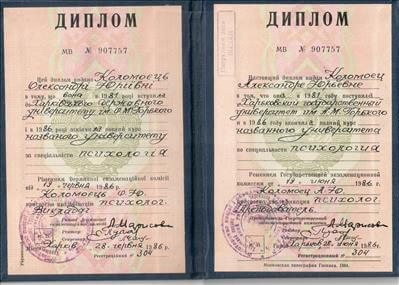 ДИПЛОМ
МВ № 907757
Цей диплом видано Коломоєць
Олександрі Юріївні
в тому, що вона в 1981 році вступила
до Харківського державного
університету ім. О.М. Горького
і в 1986 році закінчила повний курс
названого університету
за спеціальністю психологія
Рішенням Державної екзаменаційної комісії
від 19 червня 1986 р.
Коломоєць О.Ю.
присвоєно кваліфікацію психолог.
Викладач.
Харків 28 червня 1986 р.
Реєстраційний № 304
ДИПЛОМ
МВ № 907757
Настоящий диплом выдан Коломоец
Александре Юрьевне
в том, что она в 1981 году поступила
в Харьковский государственный
университет им. А.М. Горького
и в 1986 году окончила полный курс
названного университета
по специальности психология
Решением Государственной экзаменационной
комиссии от 19 июня 1986 г.
Коломоец А.Ю.
присвоена квалификация психолог.
Преподаватель.
Харьков 28 июня 1986 г.
Регистрационный № 304
Московская типография Гознака. 1984.